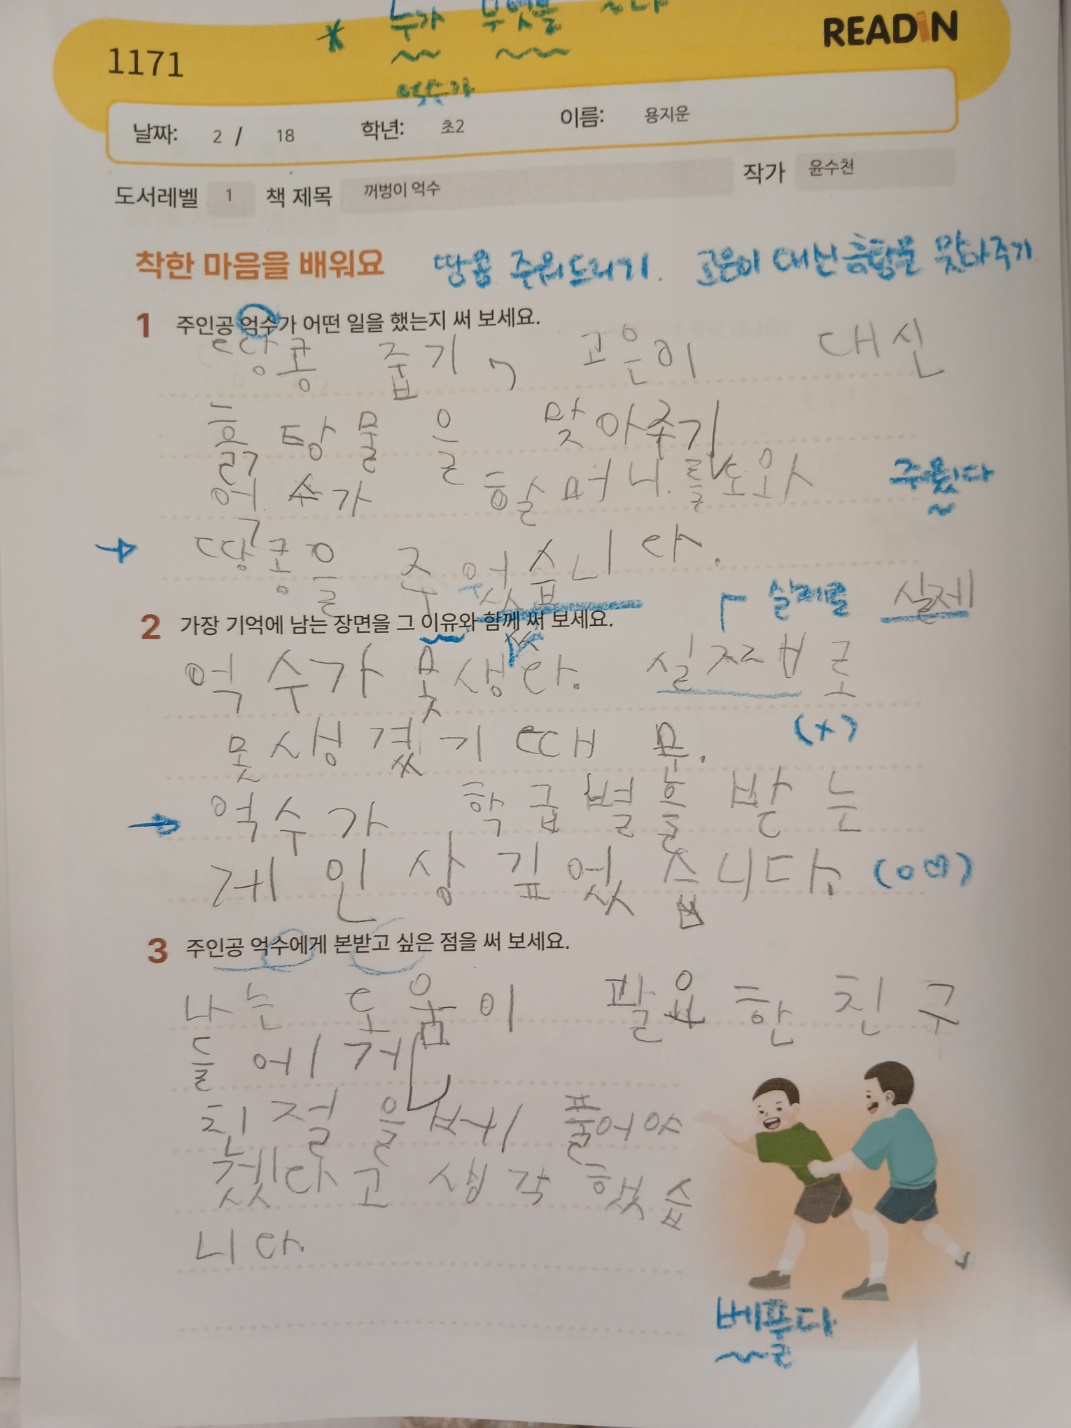 * 누가 무엇을
억수가
READiN
1171
날짜: 2 / 18 학년: 초2 이름: 용지운
도서레벨 1 책 제목 꺼벙이 억수 작가 윤수천
착한 마음을 배워요
땅콩 주워드리기. 고은이 대신 흙탕물 맞아주기
1 주인공 억수가 어떤 일을 했는지 써 보세요.
땅콩 줍기, 고은이 대신
흙탕물을 맞아주기
억수가 할머니를 도와
주웠다
→ 땅콩을 주었습니다.
실제로 실제
2 가장 기억에 남는 장면을 그 이유와 함께 써 보세요.
억수가 못생다. 실쩨로
못생겼기 때문.
(x)
→ 억수가 학급별을 받는
게 인상깊었습니다.
3 주인공 억수에게 본받고 싶은 점을 써 보세요.
나는 도움이 팔요한 친구
들에게
친절을 쎄풀어야
겠다고 생각했습
니다.
베풀다